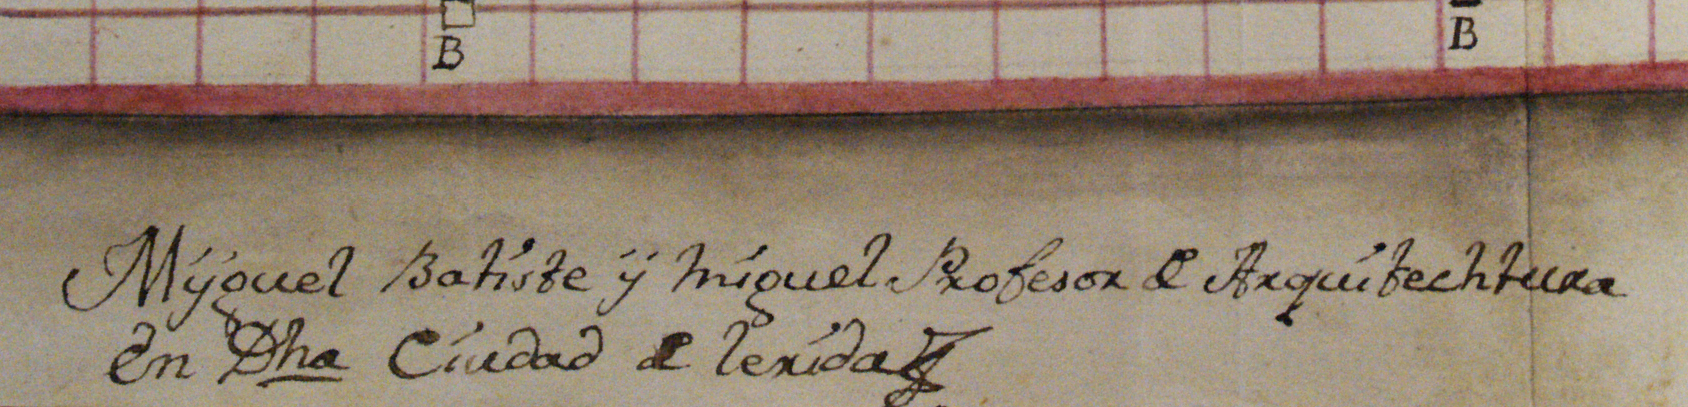 B B
Mÿguel Batiste ÿ Miguel Profesor de Arquitechtura
En Dha Ciudad de lerida